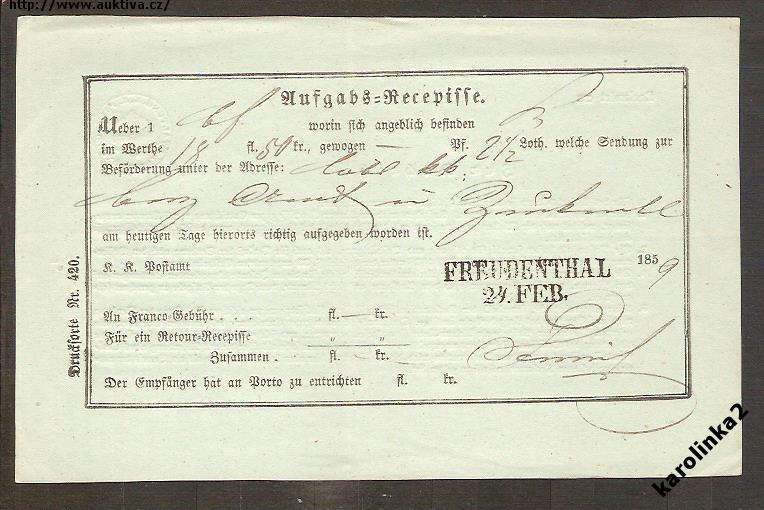 http://www.auktiva.cz/
Aufgabs-Recepisse.
Ueber 1 Bf worin sich angeblich befinden
im Werthe 18 fl. 50 kr., gewogen — Pf. 2 1/2 Loth. welche Sendung zur
Beförderung unter der Adresse: Löbl kk:
in Zuckmantl
am heutigen Tage hierorts richtig aufgegeben worden ist.
K. K. Postamt FREUDENTHAL 1859
24. FEB.
An Franco-Gebühr . . . fl. — kr.
Für ein Retour-Recepisse " "
Zusammen . fl. — kr.
Der Empfänger hat an Porto zu entrichten fl. kr.
Drucksorte Nr. 420.
karolinka2